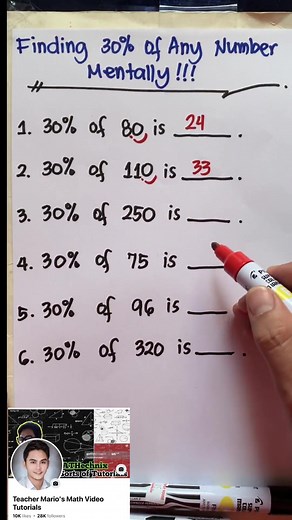 Finding 30% Of Any Number
Mentally !!!
1. 30% of 80 is 24 .
2. 30% of 110 is 33 .
3. 30% of 250 is ____ .
4. 30% of 75 is ____
5. 30% of 96 is ____
6. 30% of 320 is ____ .
Teacher Mario's Math Video
Tutorials
10K likes • 28K followers